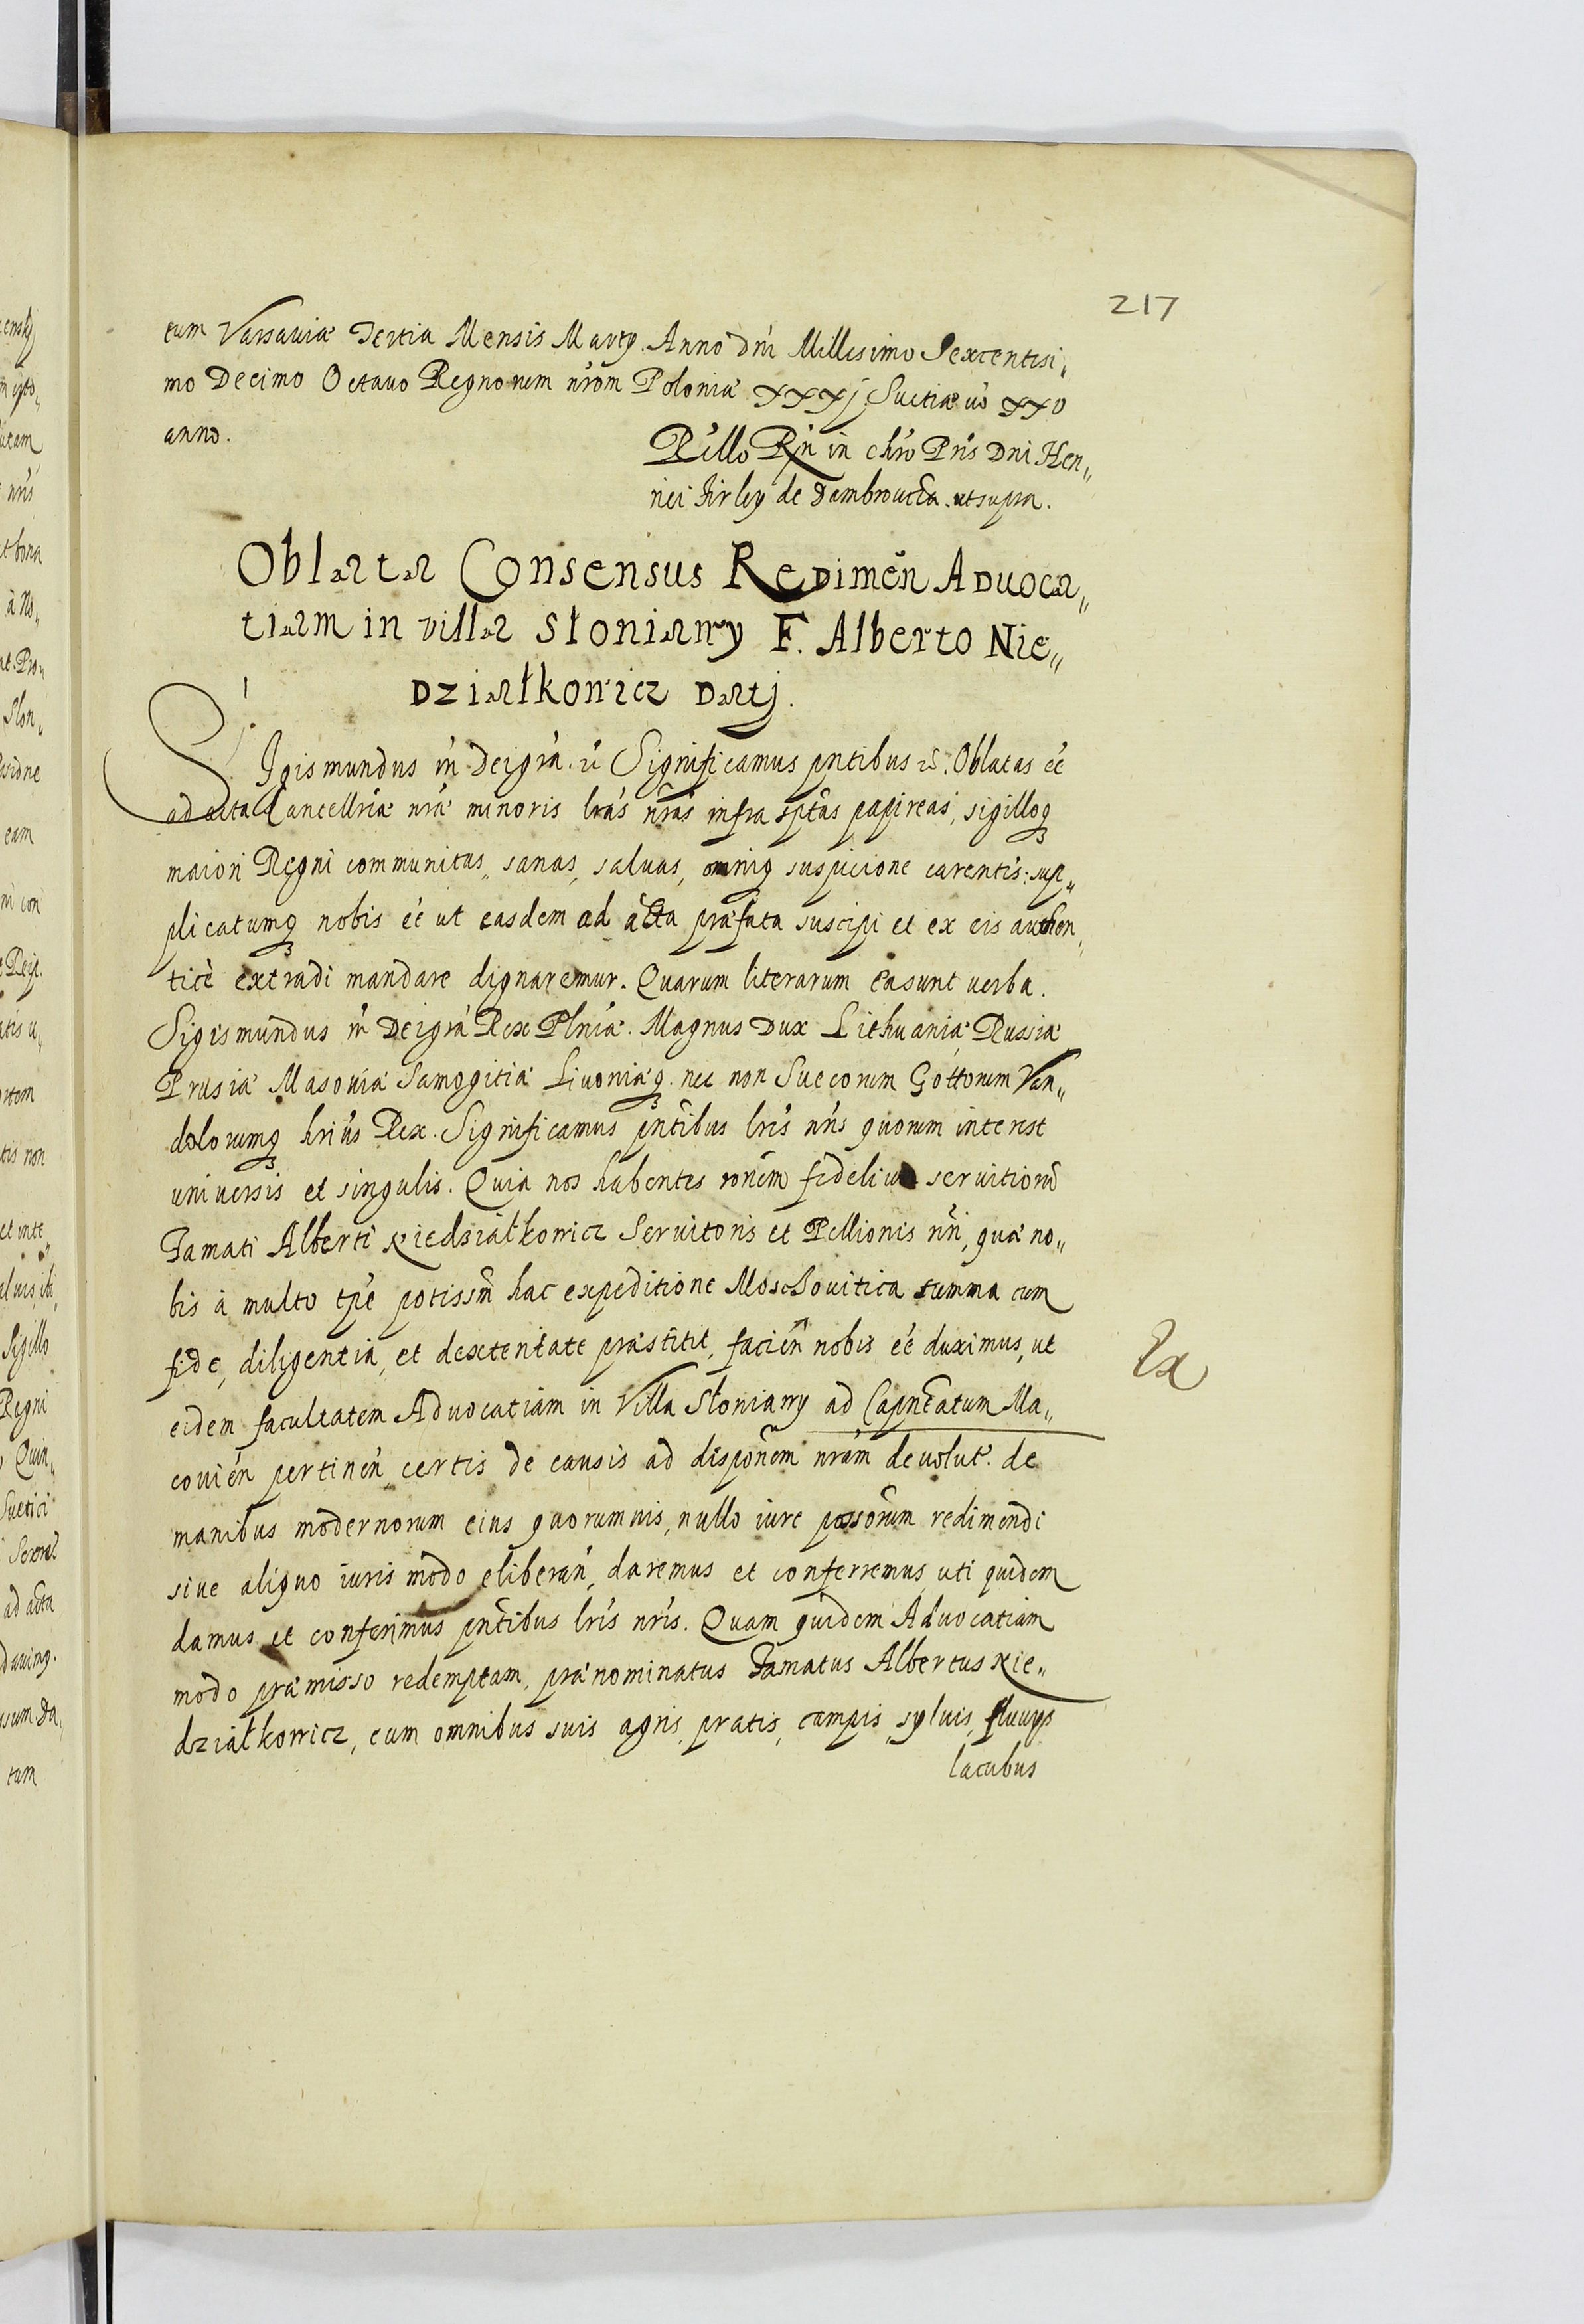 217
tum Varsauiæ Tertia Mensis Martij. Anno Dni Millesimo Sexcentesi„
mo Decimo Octauo Regnorum nrom Poloniæ XXXj. Suetiæ vo XXV
anno.
Rello Rn in chro Pris Dni Hen„
rici Firley de Dambrowica. ut supra.
Oblata Consensus Redimen Aduoca„
tiam in villa Słoniawy F. Alberto Nie„
działkowicz Datj.
Sigismundus iii Dei gra. Significamus pntibus. Oblatas eé
ad acta Cancellriæ nræ minoris lras nras infra sptas papireas, sigilloq
maiori Regni communitas, sanas, saluas, omniq suspicione carentes: sup„
plicatumq nobis eé ut easdem ad acta præfata suscipi et ex eis authen„
ticè extradi mandare dignaremur. Quarum literarum ea sunt verba.
Sigismundus iii Dei gra Rex Plniæ. Magnus Dux Lithuaniæ Russiæ
Prusiæ Masouiæ Samogitiæ Liuoniæq. nec non Suecorum Gottorum Van„
dolorumq hrius Rex. Significamus pntibus lris nris quorum interest
vniuersis et singulis. Quia nos habentes ronem fidelium seruitioru
Famati Alberti Niedziałkowicz Seruitoris et Pellionis nri, quæ no„
bis à multo tpe potissm hac expeditione Moschouitica summa cum
fide, diligentia, et dexteritate præstitit, facien nobis eé duximus, ut
eidem facultatem Aduocatiam in Villa Słoniawy ad Capneatum Ma„
Ex
couien pertinen, certis de causis ad disponem nram deuolut. de
manibus modernorum eius quorumuis, nullo iure possorum redimendi
siue aliquo iuris modo eliberan, daremus et conferremus, uti quidem
damus et conferimus pntibus lris nris. Quam quidem Aduocatiam
modo præmisso redemptam, prænominatus Famatus Albertus Nie„
działkowicz, cum omnibus suis agris, pratis, campis, syluis, fluuijs
lacubus